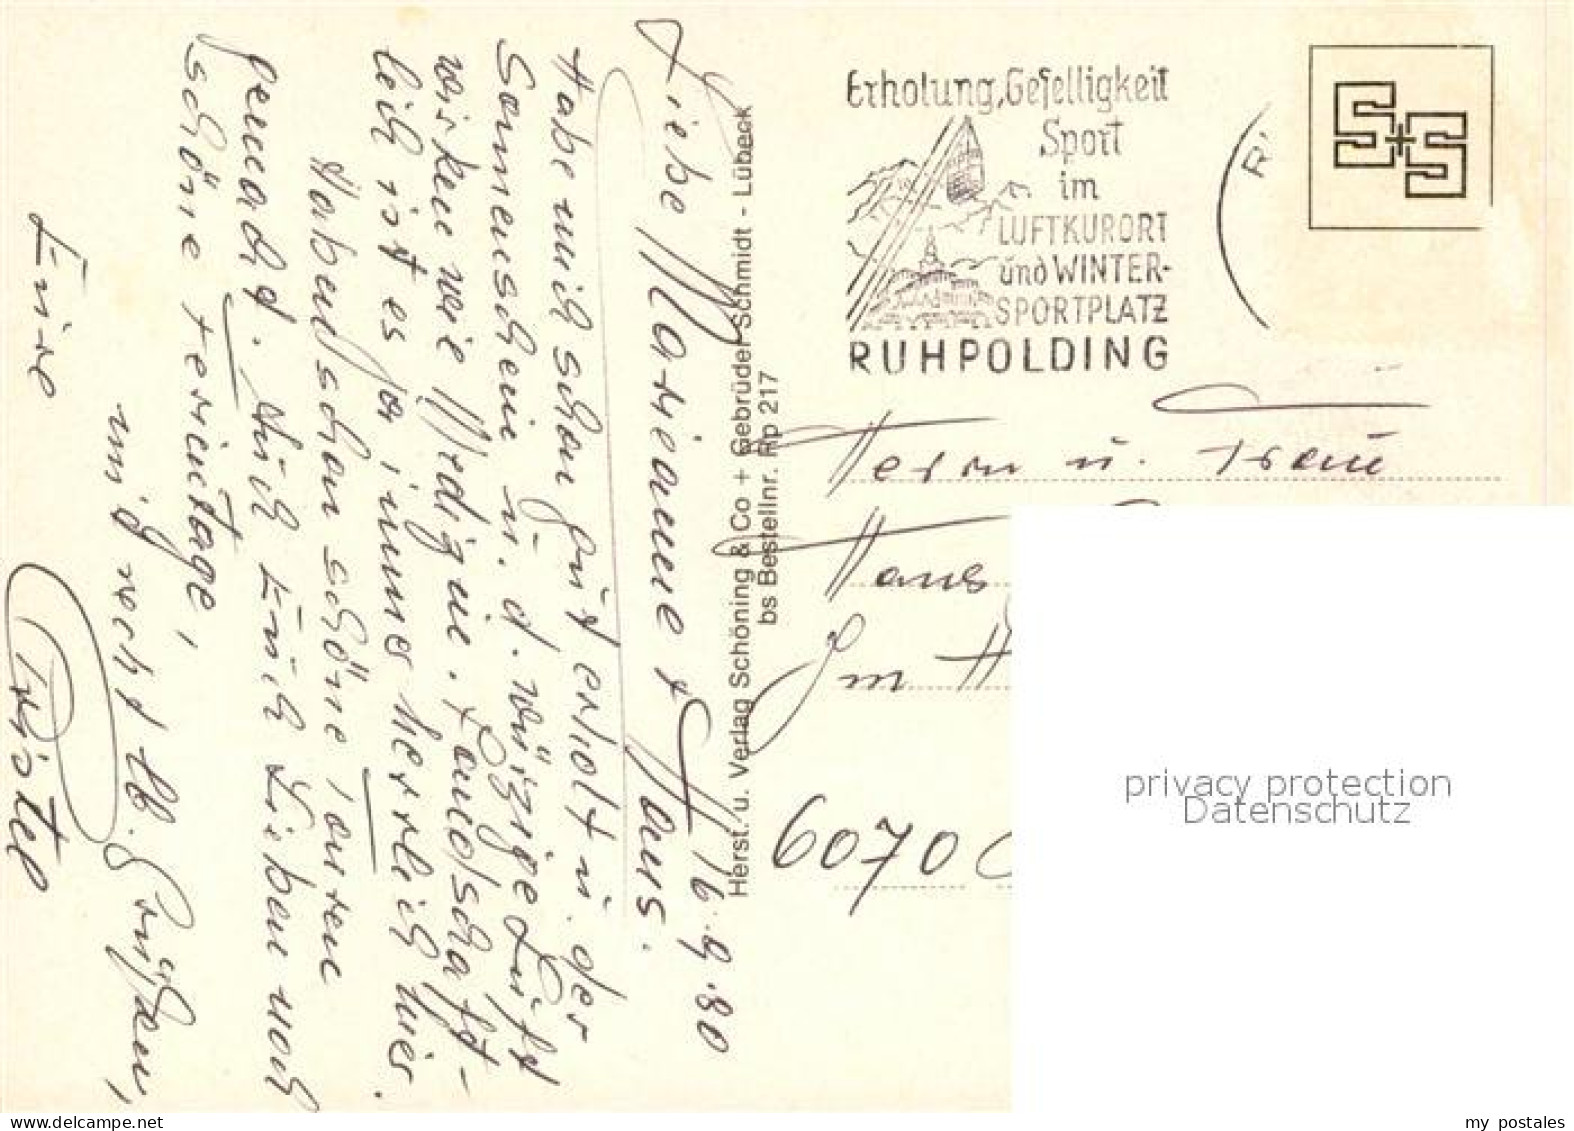 16.9.80
Liebe Marianne + Hans.
Habe mich schon gut erholt u. der
Sonnenschein u. d. würzige Luft
wirken wie Medizin. Landschaft-
lich ist es ja immer herrlich hier.
Haben schon schöne Touren
gemacht. Auch Euch Lieben noch
schöne Ferientage,
und recht lb. Grüßen,
Eure
Christel
Herst. u. Verlag Schöning & Co + Gebrüder Schmidt - Lübeck
bs Bestellnr. Rp 217
Erholung, Geselligkeit
Sport
im
LUFTKURORT
und WINTER-
SPORTPLATZ
RUHPOLDING
R
S+S
Herrn u. Frau
Hans
Im H
6070
privacy protection
Datenschutz
my postales
www.delcampe.net